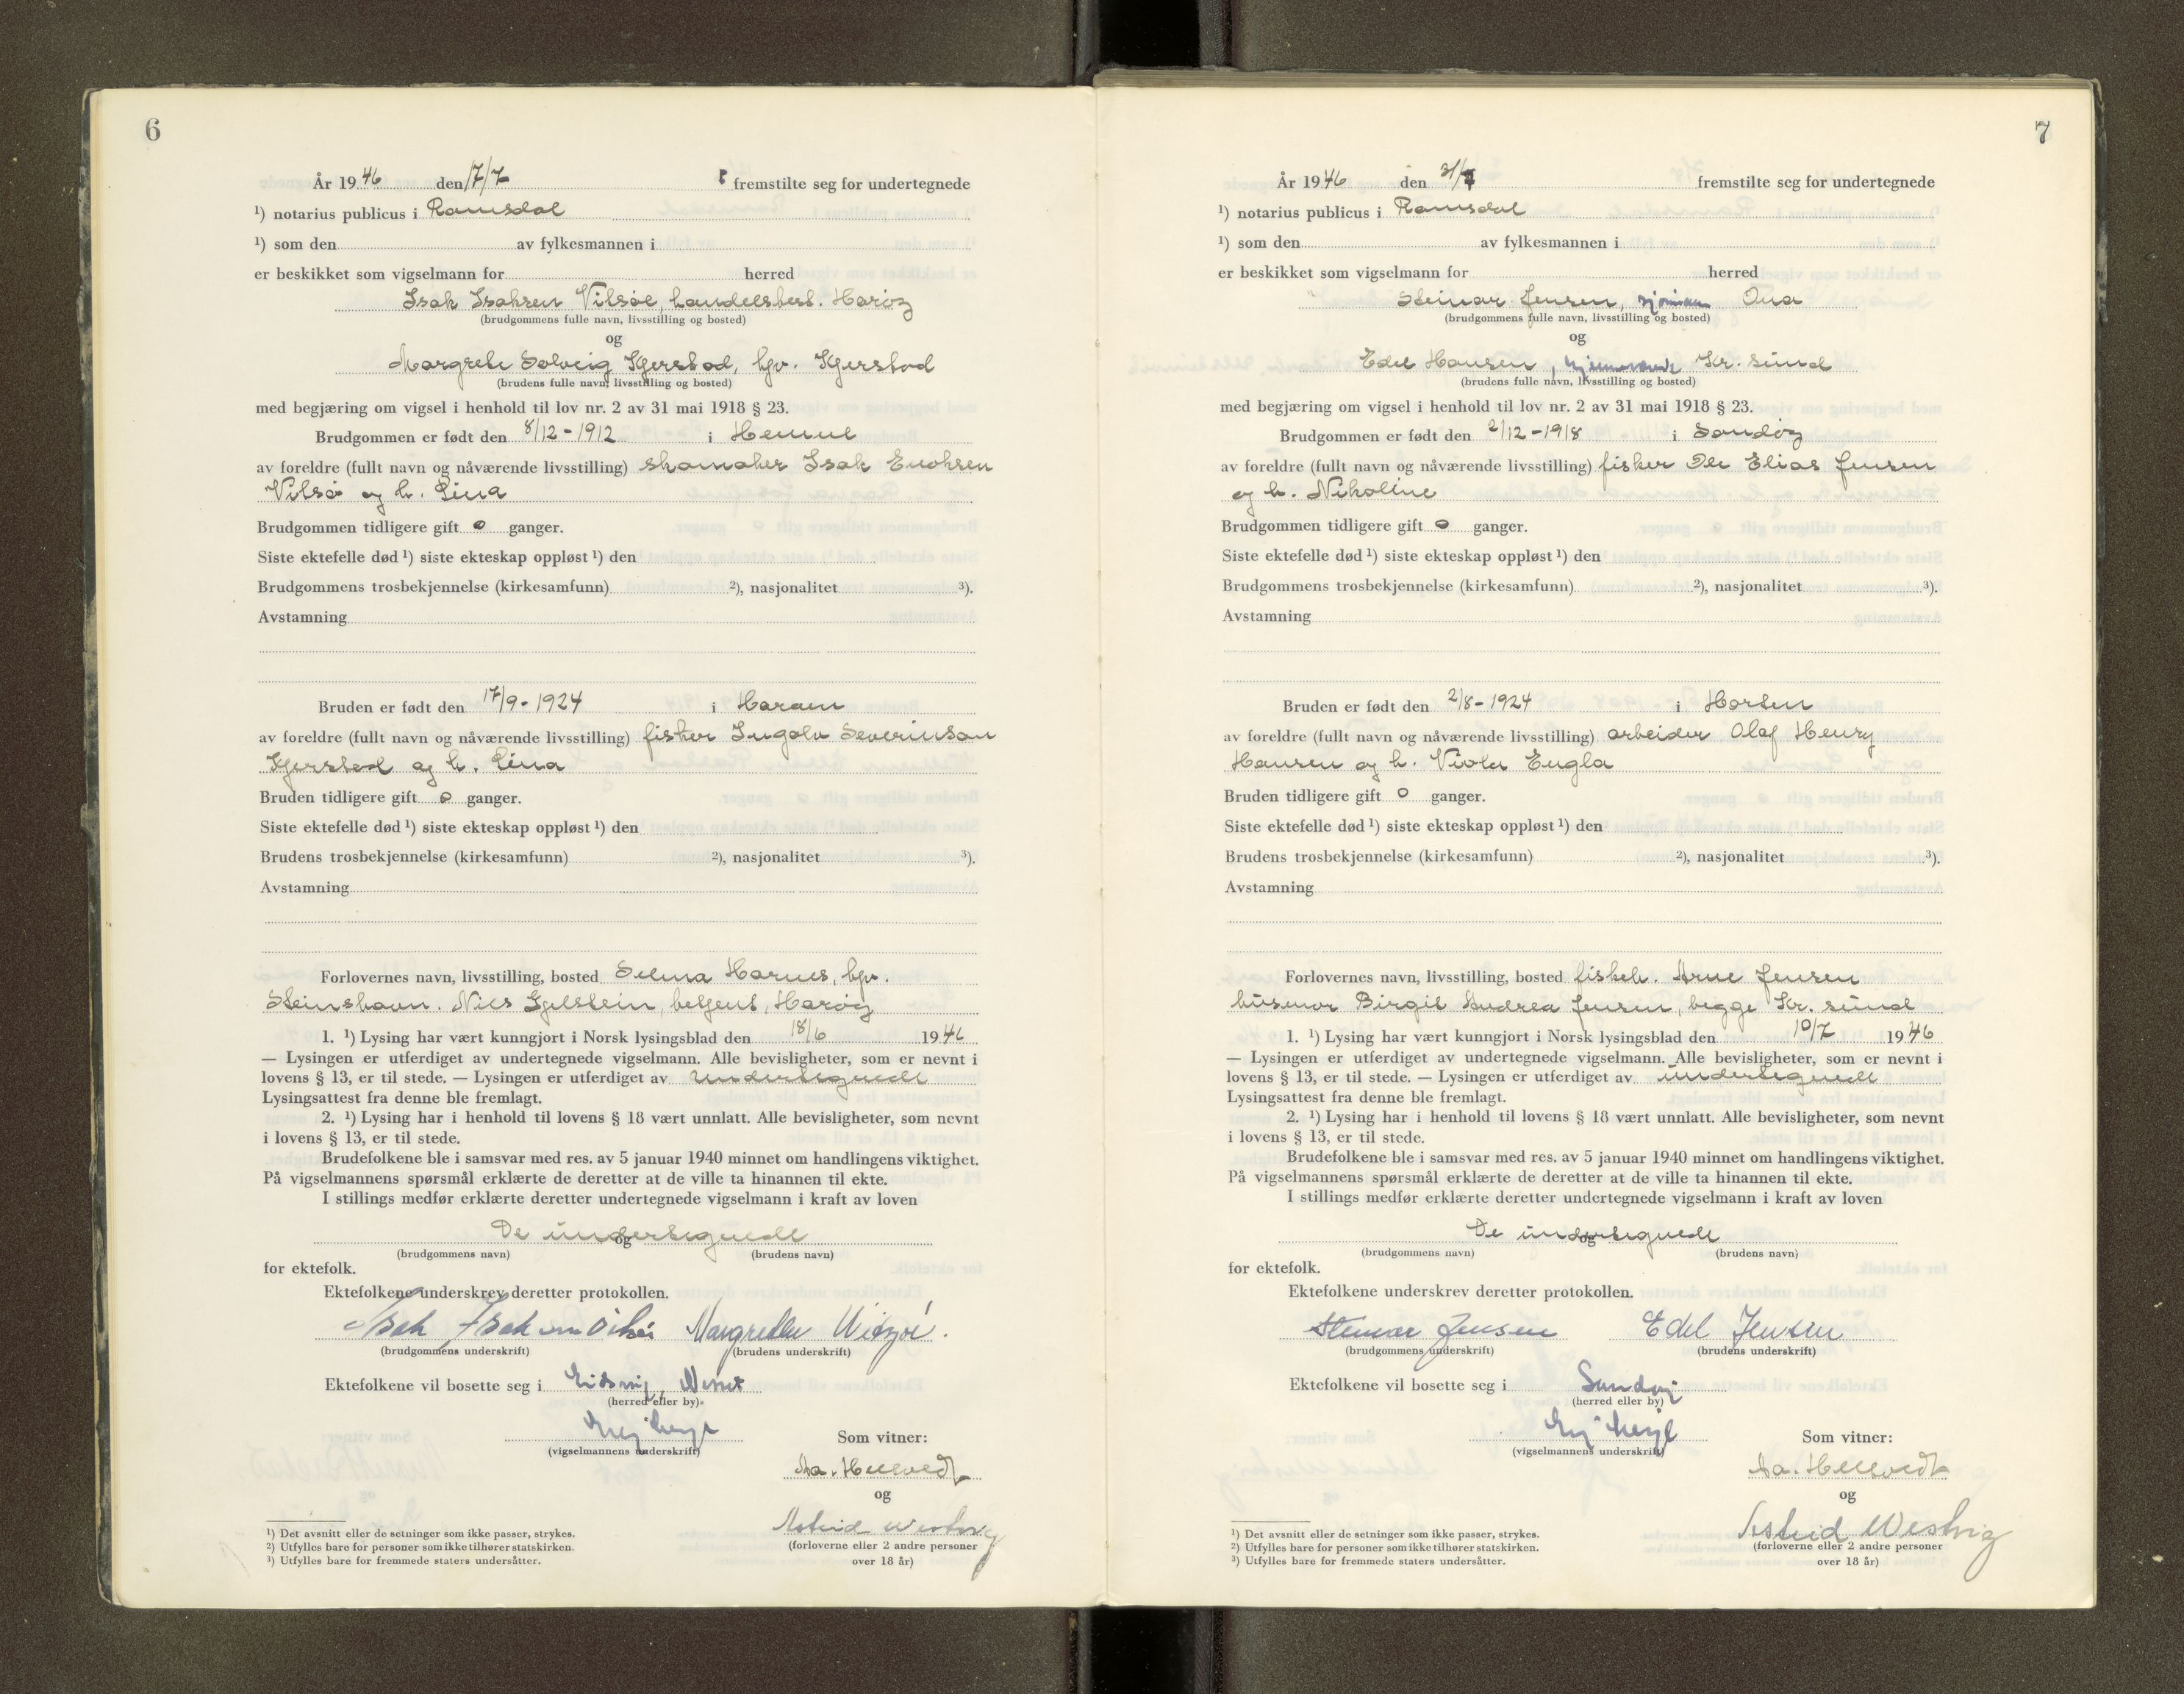 6
År 19 46 den 17/7 fremstilte seg for undertegnede
¹) notarius publicus i Romsdal
¹) som den av fylkesmannen i
er beskikket som vigselmann for herred
Isak Isaksen Vilsøe, handelsbest. Harøy
(brudgommens fulle navn, livsstilling og bosted)
og
Margrete Solveig Kjerstad, hjv. Kjerstad
(brudens fulle navn, livsstilling og bosted)
med begjæring om vigsel i henhold til lov nr. 2 av 31 mai 1918 § 23.
Brudgommen er født den 8/12-1912 i Hemne
av foreldre (fullt navn og nåværende livsstilling) skomaker Isak Enoksen
Vilsø og h. Lina
Brudgommen tidligere gift 0 ganger.
Siste ektefelle død ¹) siste ekteskap oppløst ¹) den
Brudgommens trosbekjennelse (kirkesamfunn) ²), nasjonalitet ³).
Avstamning
Bruden er født den 17/9-1924 i Haram
av foreldre (fullt navn og nåværende livsstilling) fisker Ingolv Severinson
Kjerstad og h. Lina
Bruden tidligere gift 0 ganger.
Siste ektefelle død ¹) siste ekteskap oppløst ¹) den
Brudens trosbekjennelse (kirkesamfunn) ²), nasjonalitet ³).
Avstamning
Forlovernes navn, livsstilling, bosted Selma Harnes, hjv.
Steinshavn. Nils Gjelstein, betjent, Harøy
1. ¹) Lysing har vært kunngjort i Norsk lysingsblad den 18/6 19 46
— Lysingen er utferdiget av undertegnede vigselmann. Alle bevisligheter, som er nevnt i
lovens § 13, er til stede. — Lysingen er utferdiget av undertegnede
Lysingsattest fra denne ble fremlagt.
2. ¹) Lysing har i henhold til lovens § 18 vært unnlatt. Alle bevisligheter, som nevnt
i lovens § 13, er til stede.
Brudefolkene ble i samsvar med res. av 5 januar 1940 minnet om handlingens viktighet.
På vigselmannens spørsmål erklærte de deretter at de ville ta hinannen til ekte.
I stillings medfør erklærte deretter undertegnede vigselmann i kraft av loven
De undertegnede
og
(brudgommens navn) (brudens navn)
for ektefolk.
Ektefolkene underskrev deretter protokollen.
Isak Isaksen Margrethe
(brudgommens underskrift) (brudens underskrift)
Ektefolkene vil bosette seg i Eidsvig,
(herred eller by).
(vigselmannens underskrift)
Som vitner:
Aa. Hellvedt
og
Astrid Westvig
(forloverne eller 2 andre personer
over 18 år)
¹) Det avsnitt eller de setninger som ikke passer, strykes.
²) Utfylles bare for personer som ikke tilhører statskirken.
³) Utfylles bare for fremmede staters undersåtter.
7
År 19 46 den 31/7 fremstilte seg for undertegnede
¹) notarius publicus i Romsdal
¹) som den av fylkesmannen i
er beskikket som vigselmann for herred
Steinar Jensen, sjømann Ona
(brudgommens fulle navn, livsstilling og bosted)
og
Edel Hansen, hjemmevær. Kr. sund
(brudens fulle navn, livsstilling og bosted)
med begjæring om vigsel i henhold til lov nr. 2 av 31 mai 1918 § 23.
Brudgommen er født den 2/12-1918 i Sandøy
av foreldre (fullt navn og nåværende livsstilling) fisker Ole Elias Jensen
og h. Nikoline
Brudgommen tidligere gift 0 ganger.
Siste ektefelle død ¹) siste ekteskap oppløst ¹) den
Brudgommens trosbekjennelse (kirkesamfunn) ²), nasjonalitet ³).
Avstamning
Bruden er født den 2/8-1924 i Horsen
av foreldre (fullt navn og nåværende livsstilling) arbeider Olaf Henry
Hansen og h. Viola Engla
Bruden tidligere gift 0 ganger.
Siste ektefelle død ¹) siste ekteskap oppløst ¹) den
Brudens trosbekjennelse (kirkesamfunn) ²), nasjonalitet ³).
Avstamning
Forlovernes navn, livsstilling, bosted fiskeh. Arne Jensen
husmor Birgit Andrea Jensen, begge Kr. sund
1. ¹) Lysing har vært kunngjort i Norsk lysingsblad den 10/7 19 46
— Lysingen er utferdiget av undertegnede vigselmann. Alle bevisligheter, som er nevnt i
lovens § 13, er til stede. — Lysingen er utferdiget av undertegnede
Lysingsattest fra denne ble fremlagt.
2. ¹) Lysing har i henhold til lovens § 18 vært unnlatt. Alle bevisligheter, som nevnt
i lovens § 13, er til stede.
Brudefolkene ble i samsvar med res. av 5 januar 1940 minnet om handlingens viktighet.
På vigselmannens spørsmål erklærte de deretter at de ville ta hinannen til ekte.
I stillings medfør erklærte deretter undertegnede vigselmann i kraft av loven
De undertegnede
og
(brudgommens navn) (brudens navn)
for ektefolk.
Ektefolkene underskrev deretter protokollen.
Steinar Jensen Edel Jensen
(brudgommens underskrift) (brudens underskrift)
Ektefolkene vil bosette seg i Sandøy
(herred eller by)
(vigselmannens underskrift)
Som vitner:
Aa. Hellvedt
og
Astrid Westvig
(forloverne eller 2 andre personer
over 18 år)
¹) Det avsnitt eller de setninger som ikke passer, strykes.
²) Utfylles bare for personer som ikke tilhører statskirken.
³) Utfylles bare for fremmede staters undersåtter.